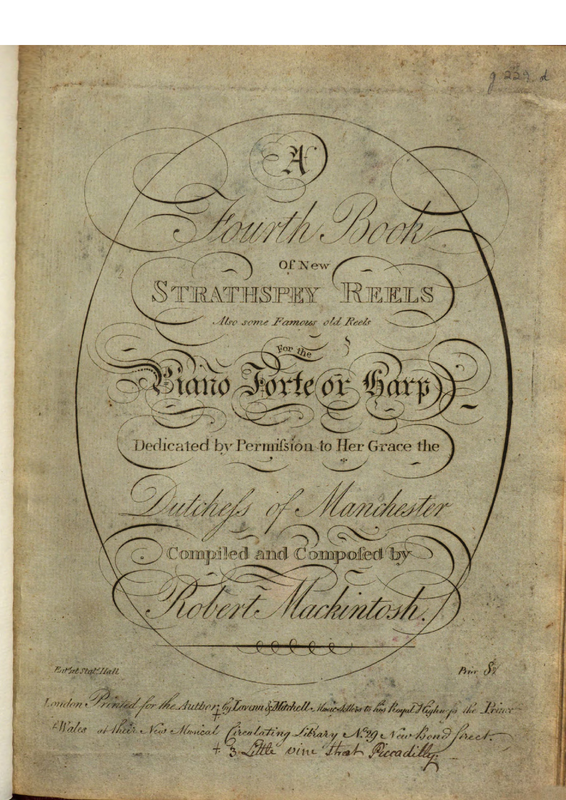 g 239. d
A
Fourth Book
Of New
STRATHSPEY REELS
Also some Famous old Reels
For the
Piano Forte or Harp
Dedicated by Permiſsion to Her Grace the
Dutcheſs of Manchester
Compiled and Compoſed by
Robert Mackintosh.
Ent at Staṭ Hall
Price
London Printed for the Author, by Lavenu & Mitchell, Music Sellers to his Royal Highneſs the Prince
Wales at their New Musical Circulating Library No. 29 New Bond Street.
+ 3 Little vine Street Piccadilly